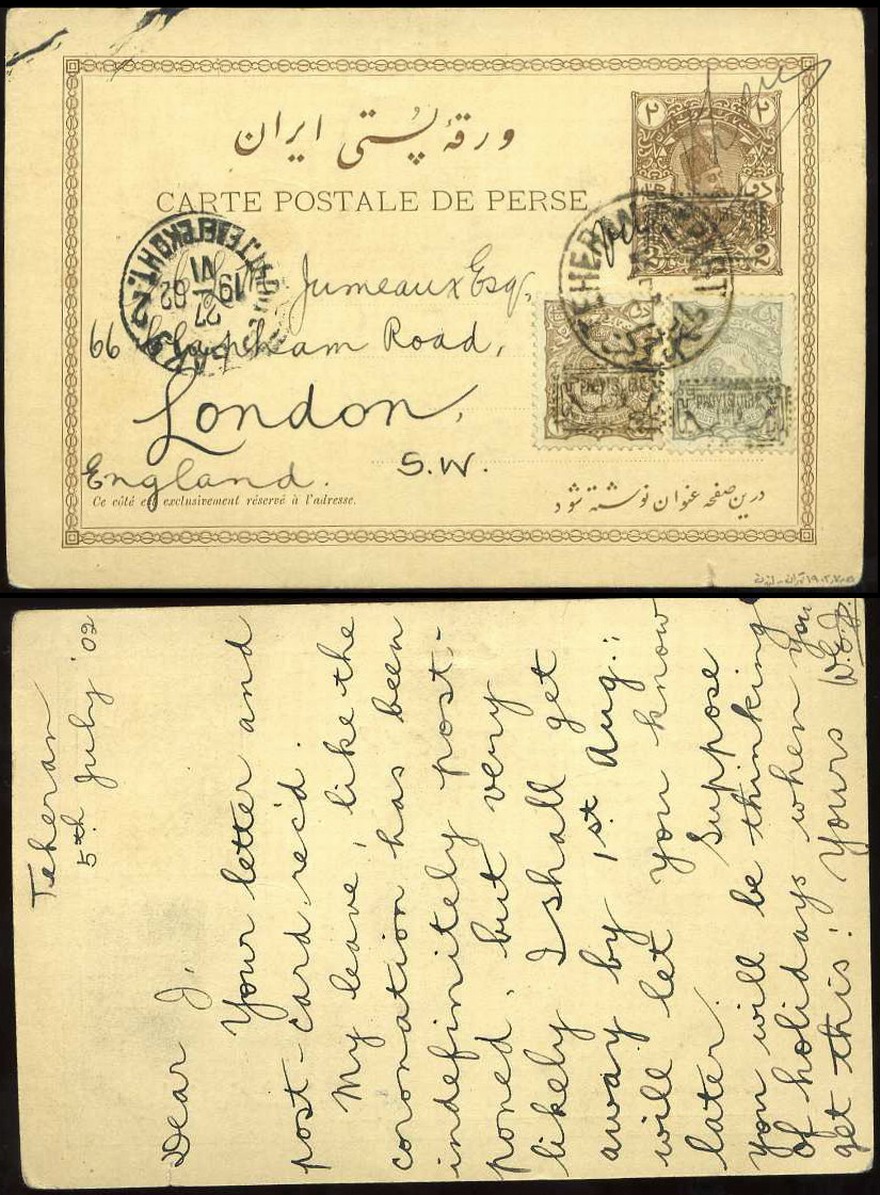 ورقهٔ پستی ایران
CARTE POSTALE DE PERSE
۲ ۲
2 2
TEHERAN
DÉPART
19 VI 02
27
Jumeaux Esq.
66 Clapham Road,
London,
England. S.W.
Ce côté est exclusivement réservé à l'adresse.
درین صفحه عنوان نوشته شود
Teheran
5th July '02
Dear J,
Your letter and
post-card rec'd.
My leave, like the
coronation has been
indefinitely post-
poned, but very
likely I shall get
away by 1st Aug.:
will let you know
later. Suppose
you will be thinking
of holidays when you
get this! Yours W.E.J.